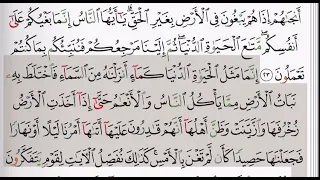 أَنجَىٰهُمْ إِذَا هُمْ يَبْغُونَ فِى ٱلْأَرْضِ بِغَيْرِ ٱلْحَقِّ ۗ يَٰٓأَيُّهَا ٱلنَّاسُ إِنَّمَا بَغْيُكُمْ عَلَىٰٓ
أَنفُسِكُم ۖ مَّتَٰعَ ٱلْحَيَوٰةِ ٱلدُّنْيَا ۖ ثُمَّ إِلَيْنَا مَرْجِعُكُمْ فَنُنَبِّئُكُم بِمَا كُنتُمْ
تَعْمَلُونَ ﴿٢٣﴾ إِنَّمَا مَثَلُ ٱلْحَيَوٰةِ ٱلدُّنْيَا كَمَآءٍ أَنزَلْنَٰهُ مِنَ ٱلسَّمَآءِ فَٱخْتَلَطَ بِهِۦ
نَبَاتُ ٱلْأَرْضِ مِمَّا يَأْكُلُ ٱلنَّاسُ وَٱلْأَنْعَٰمُ حَتَّىٰٓ إِذَآ أَخَذَتِ ٱلْأَرْضُ
زُخْرُفَهَا وَٱزَّيَّنَتْ وَظَنَّ أَهْلُهَآ أَنَّهُمْ قَٰدِرُونَ عَلَيْهَآ أَتَىٰهَآ أَمْرُنَا لَيْلًا أَوْ نَهَارًا
فَجَعَلْنَٰهَا حَصِيدًا كَأَن لَّمْ تَغْنَ بِٱلْأَمْسِ ۚ كَذَٰلِكَ نُفَصِّلُ ٱلْءَايَٰتِ لِقَوْمٍ يَتَفَكَّرُونَ